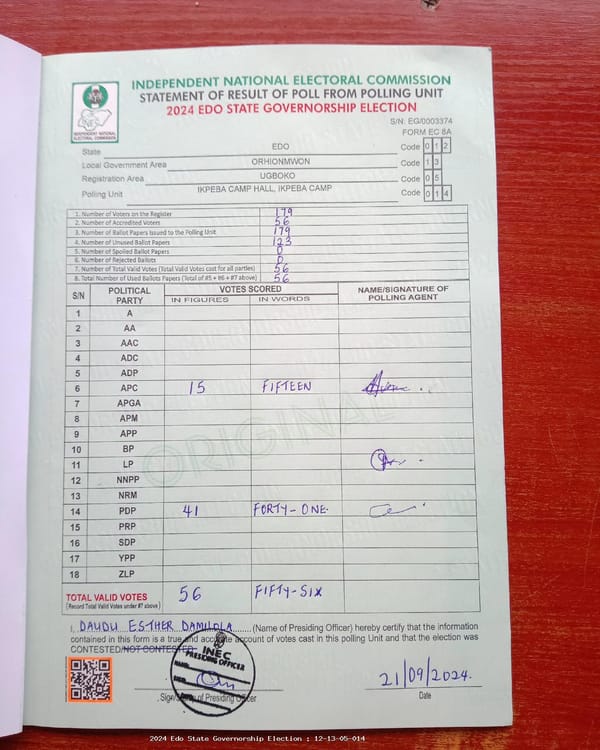 INDEPENDENT NATIONAL ELECTORAL COMMISSION
STATEMENT OF RESULT OF POLL FROM POLLING UNIT
2024 EDO STATE GOVERNORSHIP ELECTION
INDEPENDENT NATIONAL ELECTORAL COMMISSION
S/N: EG/0003374
FORM EC 8A
State EDO Code 0 1 2
Local Government Area ORHIONMWON Code 1 3
Registration Area UGBOKO Code 0 5
Polling Unit IKPEBA CAMP HALL, IKPEBA CAMP Code 0 1 4
1. Number of Voters on the Register 179
2. Number of Accredited Voters 56
3. Number of Ballot Papers Issued to the Polling Unit 179
4. Number of Unused Ballot Papers 123
5. Number of Spoiled Ballot Papers 0
6. Number of Rejected Ballots 0
7. Number of Total Valid Votes (Total Valid Votes cast for all parties) 56
8. Total Number of Used Ballots Papers (Total of #5 + #6 + #7 above) 56
S/N POLITICAL PARTY VOTES SCORED NAME/SIGNATURE OF POLLING AGENT
IN FIGURES IN WORDS
1 A
2 AA
3 AAC
4 ADC
5 ADP
6 APC 15 FIFTEEN
7 APGA
8 APM
9 APP
10 BP
11 LP
12 NNPP
13 NRM
14 PDP 41 FORTY-ONE.
15 PRP
16 SDP
17 YPP
18 ZLP
ORIGINAL
TOTAL VALID VOTES 56 FIFTY-SIX
(Record Total Valid Votes under #7 above)
I, DAUDU ESTHER DAMILOLA (Name of Presiding Officer) hereby certify that the information
contained in this form is a true and accurate account of votes cast in this polling Unit and that the election was
CONTESTED/NOT CONTESTED
INEC
PRESIDING OFFICER
21/09/2024.
Sign/Stamp of Presiding Officer Date
2024 Edo State Governorship Election : 12-13-05-014